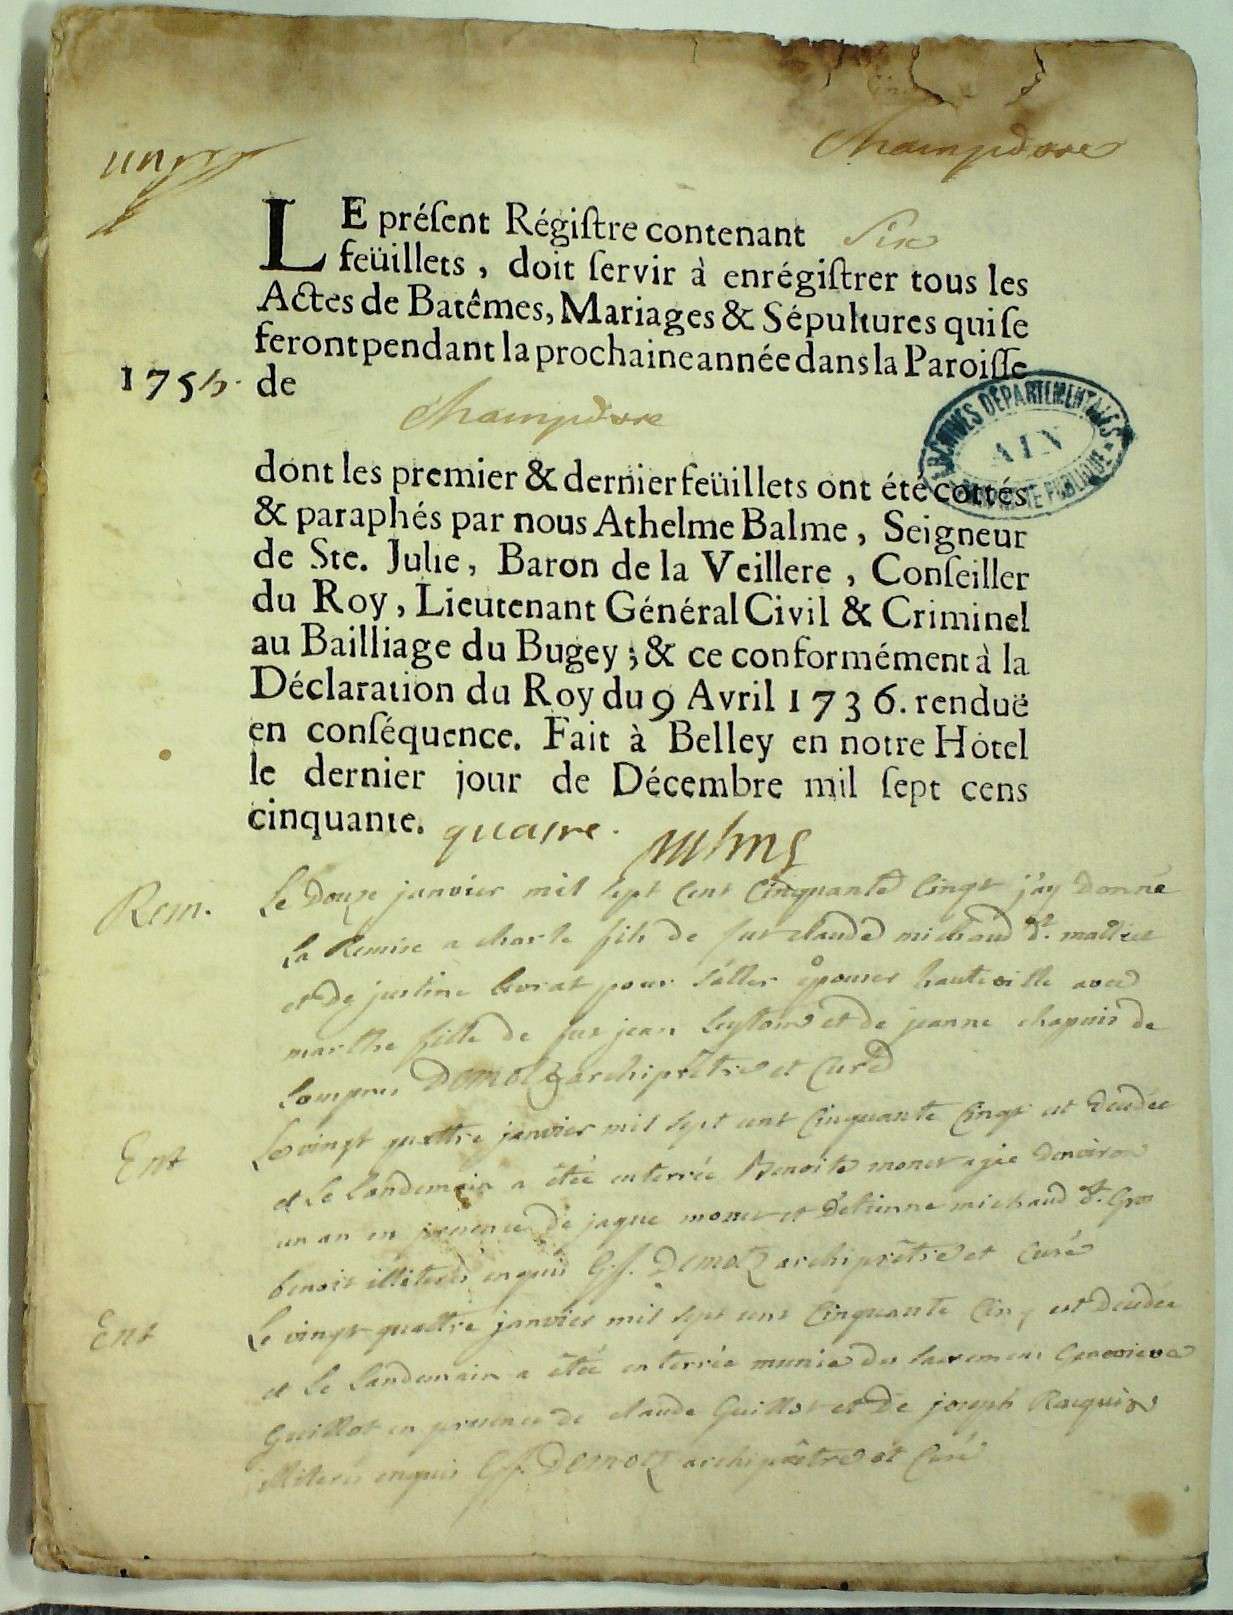 Champdore
un
LE préſent Régiſtre contenant Six
feüillets, doit ſervir à enrégiſtrer tous les
Actes de Batêmes, Mariages & Sépultures qui ſe
feront pendant la prochaine année dans la Paroiſſe
1755.
de
Champdore
ARCHIVES DÉPARTEMENTALES
AIN
PROPRIÉTÉ PUBLIQUE
dont les premier & dernier feüillets ont été cottés
& paraphés par nous Athelme Balme, Seigneur
de Ste. Julie, Baron de la Veillere, Conſeiller
du Roy, Lieutenant Général Civil & Criminel
au Bailliage du Bugey; & ce conformément à la
Déclaration du Roy du 9 Avril 1736. renduë
en conſéquence. Fait à Belley en notre Hôtel
le dernier jour de Décembre mil ſept cens
cinquante. quatre.
Rem.
Le Douze janvier mil sept cent Cinquante Cinqt j'ay Donné
La Remise a charle fils de fut claude michaud
et de justine pour s'aller épouser hauteville avec
marthe fille de fut jean et de jeanne chapuis de
Lompnes DEMOTZ archiprêtre et Curé
Ent
Le vingt quattre janvier mil sept cent Cinquante Cinqt est decedée
et Le Landemain a étée enterrée Benoite monet agée D'environ
un an en presence de jaque monet et D'etienne michaud
benoit illiterés enquis DEMOTZ archiprêtre et Curé
Ent
Le vingt quattre janvier mil sept cent Cinquante Cinq est decedée
et Le Landemain a étée enterrée munie des sacremens Genevieve
Guillot en presence de claude Guillot et De joseph Racquin
illiterés enquis DEMOTZ archiprêtre et Curé